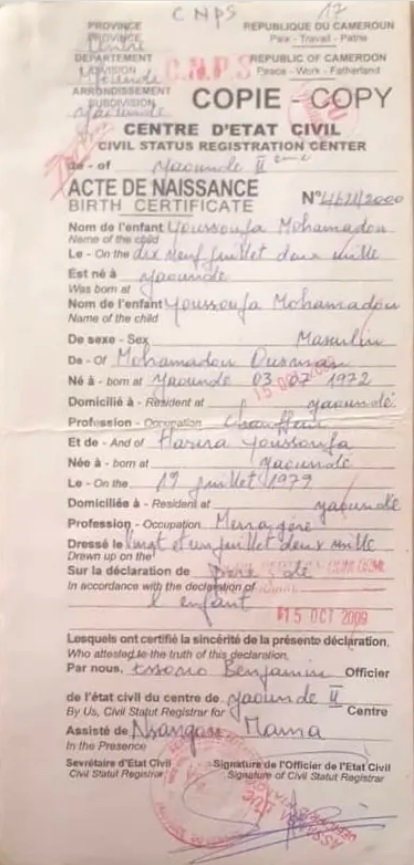 CNPS 17
PROVINCE
PROVINCE
Centre
DEPARTEMENT
DIVISION
ARRONDISSEMENT
SUBDIVISION
Yaounde
REPUBLIQUE DU CAMEROUN
Paix - Travail - Patrie
REPUBLIC OF CAMEROON
Peace - Work - Fatherland
C.N.P.S
COPIE - COPY
CENTRE D'ETAT CIVIL
CIVIL STATUS REGISTRATION CENTER
de - of Yaounde II eme
ACTE DE NAISSANCE
BIRTH CERTIFICATE
N° /2000
Nom de l'enfant Youssoufa Mohamadou
Name of the child
Le - On the dix neuf juillet deux mille
Est né à Yaounde
Was born at
Nom de l'enfant Youssoufa Mohamadou
Name of the child
De sexe - Sex Masculin
De - Of Mohamadou Ousman
Né à - born at Yaounde 03 07 1972
15 OCT
Domicilié à - Resident at Yaoundé
Profession - Occupation Chauffeur
Et de - And of Youssoufa
Née à - born at Yaoundé
Le - On the 19 juillet 1979
Domiciliée à - Resident at Yaoundé
Profession - Occupation Menagère
Dressé le Vingt et un juillet deux mille
Drawn up on the
Sur la déclaration de
In accordance with the declaration of
l'enfant
15 OCT 2009
Lesquels ont certifié la sincérité de la présente déclaration.
Who attested to the truth of this declaration.
Par nous, Essono Benjamin Officier
de l'état civil du centre de Yaounde II
By Us, Civil Statut Registrar for Centre
Assisté de Mama
In the Presence
Secrétaire d'Etat Civil
Civil Statut Registrar
Signature de l'Officier de l'Etat Civil
Signature of Civil Statut Registrar